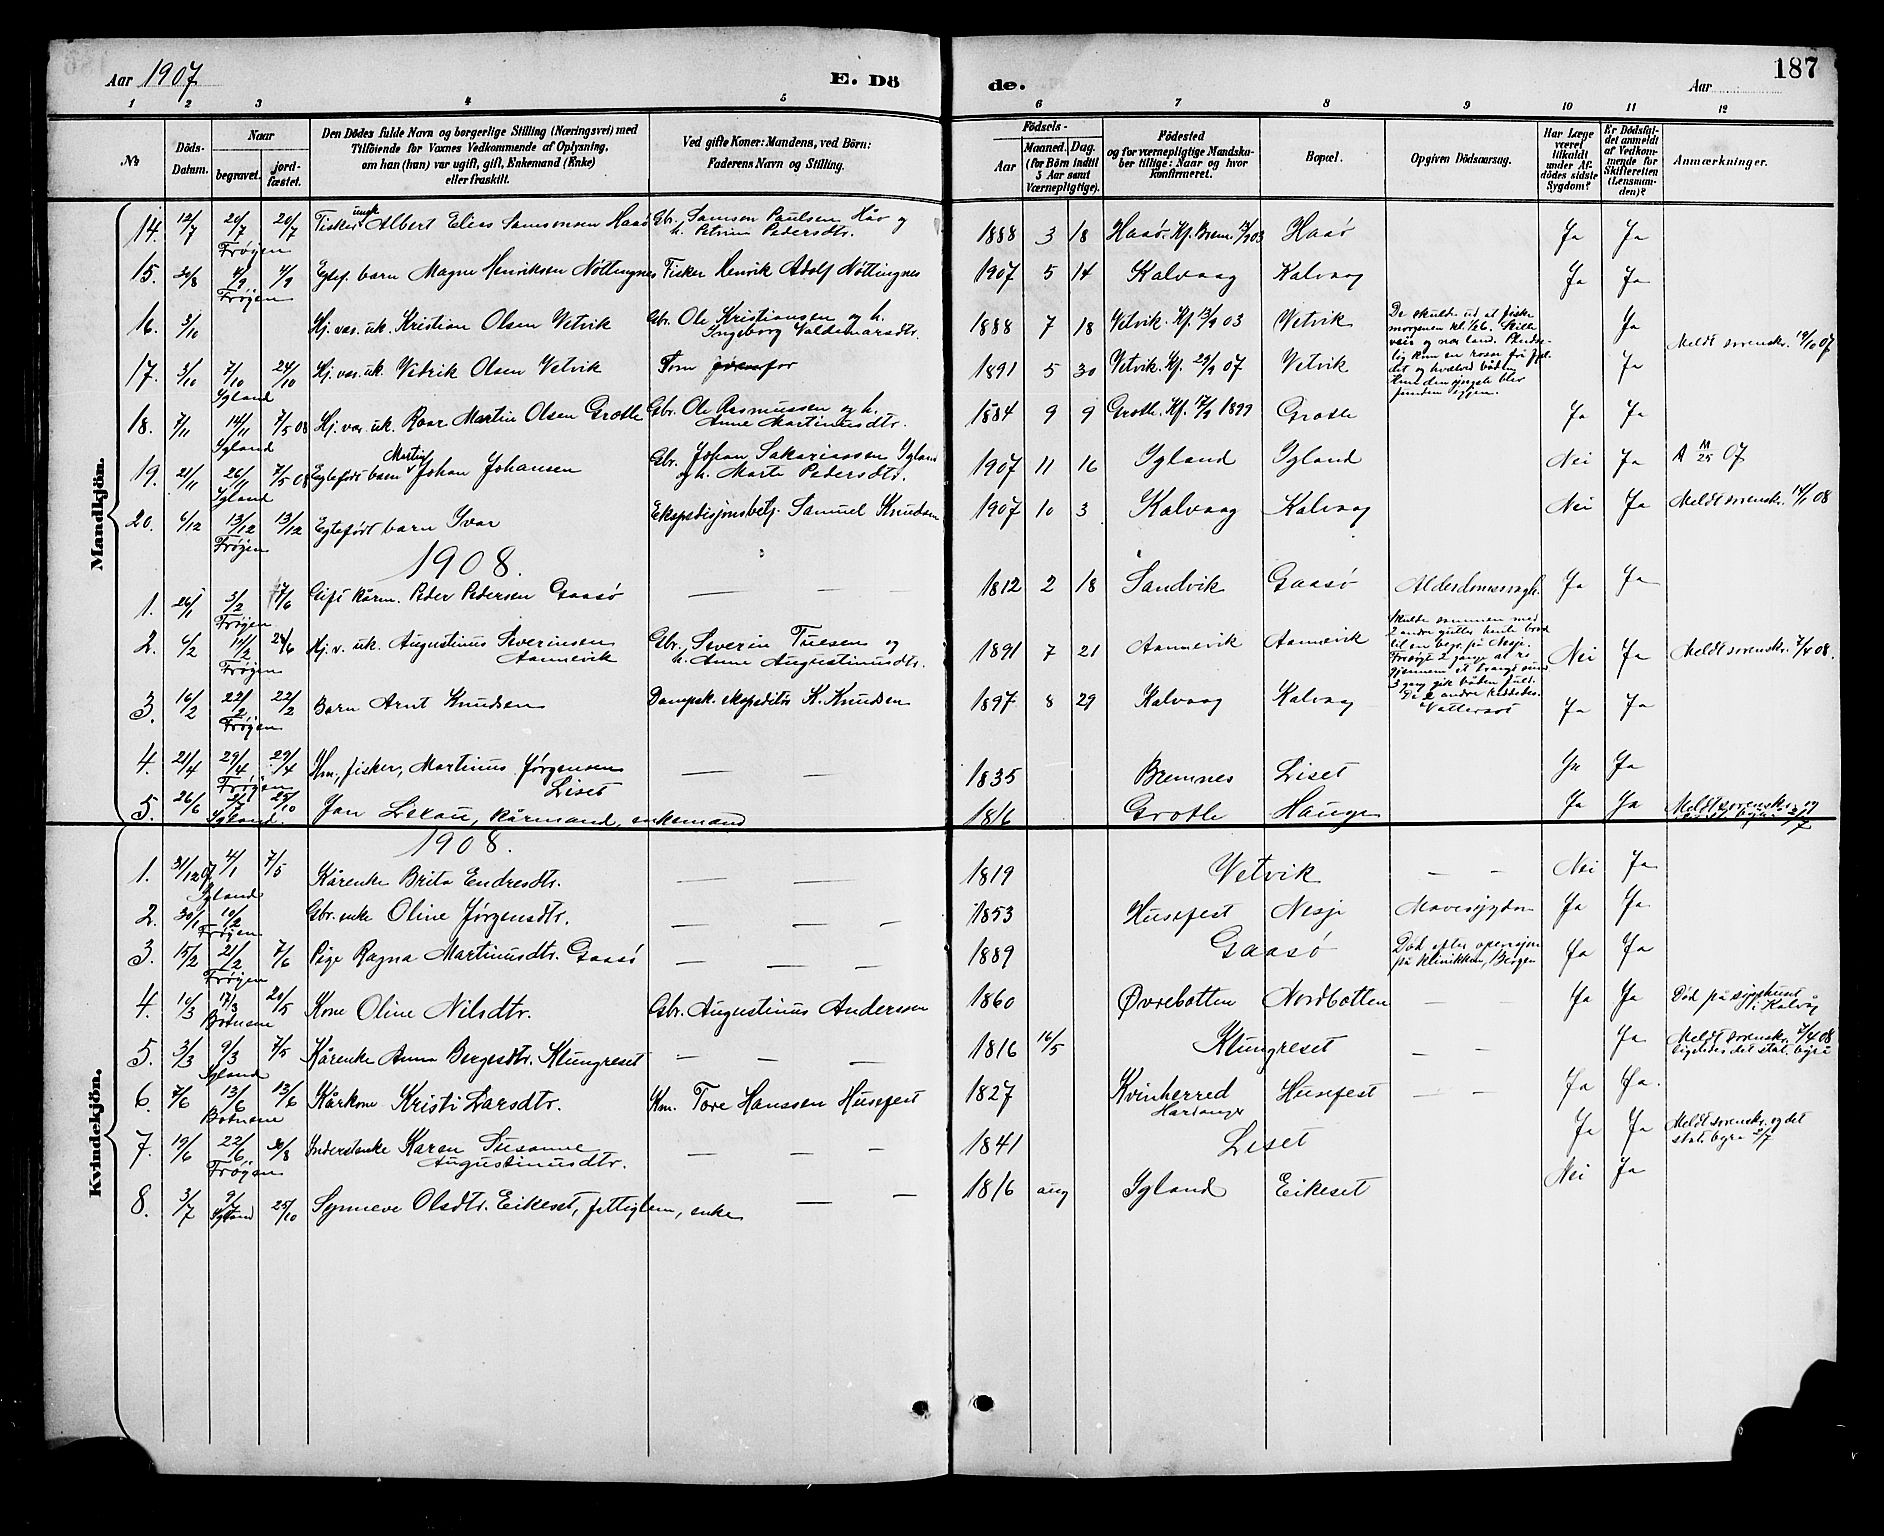 187
Aar 1907 E. Dö de. Aar
1 2 3 4 5 6 7 8 9 10 11 12
№ Döds-Datum. Naar begravet. jordfæstet. Den Dödes fulde Navn og borgerlige Stilling (Næringsvei) med Tilföiende for Voxnes Vedkommende af Oplysning, om han (hun) var ugift, gift, Enkemand (Enke) eller fraskilt. Ved gifte Koner: Mandens, ved Börn: Faderens Navn og Stilling. Födsels- Aar Maaned. Dag. (for Börn indtil 5 Aar samt Værnepligtige). Födested og for værnepligtige Mandskaber tillige: Naar og hvor Konfirmeret. Bopæl. Opgiven Dödsaarsag. Har Læge været tilkaldt under Afdödes sidste Sygdom? Er Dödsfaldet anmeldt af Vedkommende for Skifteretten (Lensmanden)? Anmærkninger.
Mandkjön.
14. 12/7 20/7 Frøyen 20/7 Fisker ungk. Albert Elias Samsonsen Haasø Gbr. Samson Paulsen Hav og h. Petrine Pedersdtr. 1888 3 18 Haasø. Kf. Brem. 03 Haasø Ja Ja
15. 20/8 4/9 Frøyen 4/9 Egtef. barn Magne Henriksen Nøttingnes Fisker Henrik Adolf Nøttingnes 1907 5 14 Kalvaag Kalvaag Ja Ja
16. 3/10 Hj. vær. uk. Kristian Olsen Vetvik Gbr. Ole Kristiansen og h. Ingeborg Valdemarsdtr. 1888 7 18 Vetvik. Kf. 13/9 03 Vetvik De skulde ud at fiske morgenen kl. 1/2 6. Stille veir og nær land. Pludselig kom en rosse fra fjeldet og hvælved båden. Kun den yngste blev funden. Ja Meldt sorenskr. 19/10 07
17. 3/10 7/10 Igland 24/10 Hj. vær. uk. Vedrik Olsen Vetvik Som ovenfor 1891 5 30 Vetvik. Kf. 29/9 07 Vetvik Ja
18. 7/11 14/11 Igland 7/5 08 Hj. vær. uk. Roar Martin Olsen Grotle Gbr. Ole Rasmussen og h. Anne Martinusdtr. 1884 9 9 Grotle. Kf. 17/9 1899 Grotle Ja Ja
19. 21/11 26/11 Igland 7/5 08 Egtefødt barn Martin Johan Johansen Gbr. Johan Sakariassen Igland og h. Marte Pedersdtr. 1907 11 16 Igland Igland Nei Ja 07
20. 6/12 13/12 Frøyen 13/12 Egtefødt barn Ivar Ekspedisjonsbetj. Samuel Knudsen 1907 10 3 Kalvaag Kalvaag Nei Ja Meldt sorenskr. 14/1 08
1908.
1. 26/1 3/2 Frøyen 17/6 Gift kårm. Peder Pedersen Gaasø 1812 2 18 Sandvik Gaasø Ja Ja
2. 6/2 11/2 Frøyen 24/6 Hj. v. uk. Augustinus Severinsen Aannevik Gbr. Severin Tuesen og h. Anne Augustinusdtr. 1891 7 21 Aannevik Aannevik Skulde sammen med 2 andre gutter hente brød til en beg. på Nesje. Forsøgte 2 gange at ro gjennem et trangt sund. 3 gang gik båden fuld. De 2 andre reddedes. Nei Ja Meldt sorenskr. 7/4 08.
3. 16/2 22/2 Frøyen 22/2 Barn Arnt Knudsen Dampsk. ekspeditør K. Knudsen 1897 8 29 Kalvaag Kalvaag Vattersot Ja Ja
4. 21/4 29/4 Frøyen 29/4 Hm, fisker, Martinus Jørgensen Liset 1835 Bremnes Liset Ja Ja
5. 26/6 2/7 Igland 25/10 Jan Lexau, kårmand, enkemand 1816 Grotle Hauge Ja Ja Meldt sorenskr. og 2/7
Kvindekjön.
1908.
1. 31/12 07 4/1 Igland 7/5 Kårenke Brita Endresdtr. 1819 Vetvik Nei Ja
2. 30/1 10/2 Frøyen Gbr. enke Oline Jørgensdtr. 1853 Husefest Nesje Mavesygdom Ja Ja
3. 15/2 21/2 Frøyen 7/6 Pige Ragna Martinusdtr. Gaasø 1889 Gaasø Død efter operasjon på klinikken, Bergen Ja Ja
4. 10/3 17/3 Botnene 20/5 Kone Oline Nilsdtr. Gbr. Augustinus Andersen 1860 Øvrebotten Nordbotten Ja Ja Død på sygehuset i Kalvåg
5. 3/3 9/3 Igland 7/5 Kårenke Anna Bergesdtr. Klungreset 1816 16/5 Klungreset Ja Meldt sorenskr. 7/4 08 ligeledes det stat. byrå
6. 7/6 13/6 Botnene 13/6 Kårkone Kristi Larsdtr. Km. Tore Hanssen Husefest 1827 Kvinherred Hardanger Husefest Ja Ja.
7. 19/6 22/6 Frøyen 30/8 Inderstenke Karen Susanne Augustinusdtr. 1841 Liset Ja Ja Meldt sorenskr. og det stat. byrå 2/7
8. 3/7 9/7 Igland 25/10 Synneve Olsdtr. Eikeset, fattiglem, enke 1816 aug Igland Eikeset Nei Ja